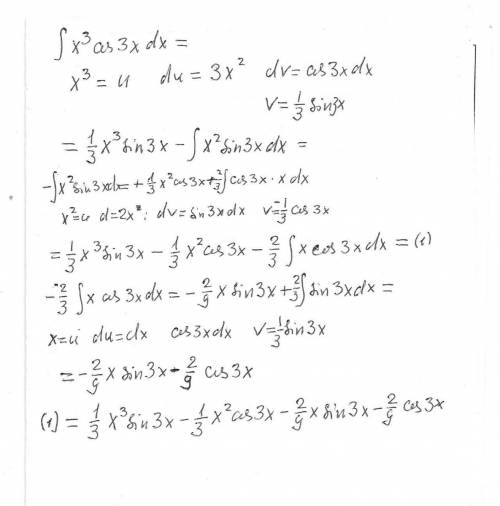 ∫ x³ cos 3x dx =
x³ = u   du = 3x²   dv = cos 3x dx
v = 1/3 sin 3x
= 1/3 x³ sin 3x − ∫ x² sin 3x dx =
−∫ x² sin 3x dx = + 1/3 x² cos 3x + 2/3 ∫ cos 3x · x dx
x² = u   d = 2x   dv = sin 3x dx   v = −1/3 cos 3x
= 1/3 x³ sin 3x − 1/3 x² cos 3x − 2/3 ∫ x cos 3x dx = (1)
−2/3 ∫ x cos 3x dx = −2/9 x sin 3x + 2/3 ∫ sin 3x dx =
x = u   du = dx   cos 3x dx   v = 1/3 sin 3x
= −2/9 x sin 3x − 2/9 cos 3x
(1) = 1/3 x³ sin 3x − 1/3 x² cos 3x − 2/9 x sin 3x − 2/9 cos 3x